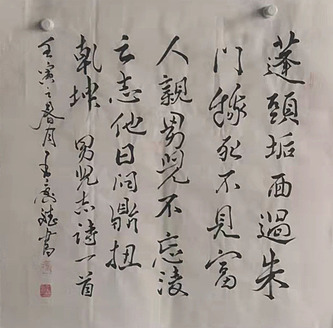 蓬頭垢面過朱
門餓死不見富
人親男兒不忘凌
云志他日問鼎扭
乾坤 男兒志詩一首
壬寅之春月王書